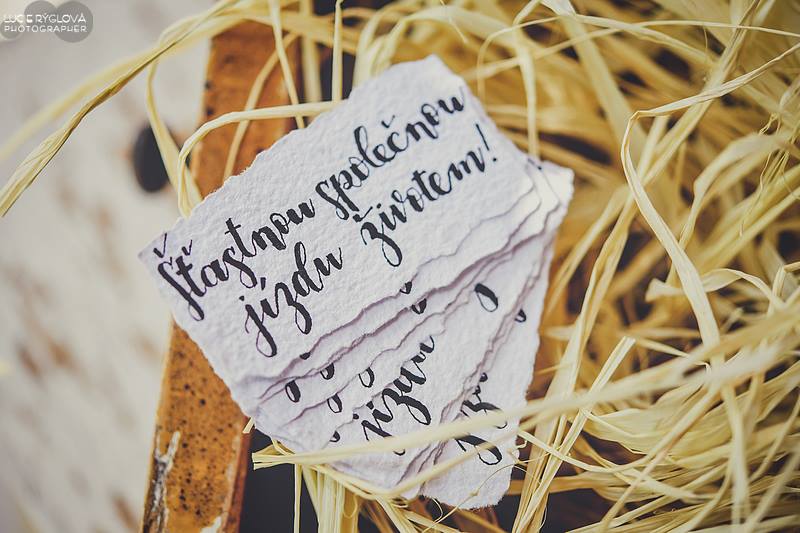 LUCIE RÝGLOVÁ
PHOTOGRAPHER
Šťastnou společnou
jízdu životem!
jízdu